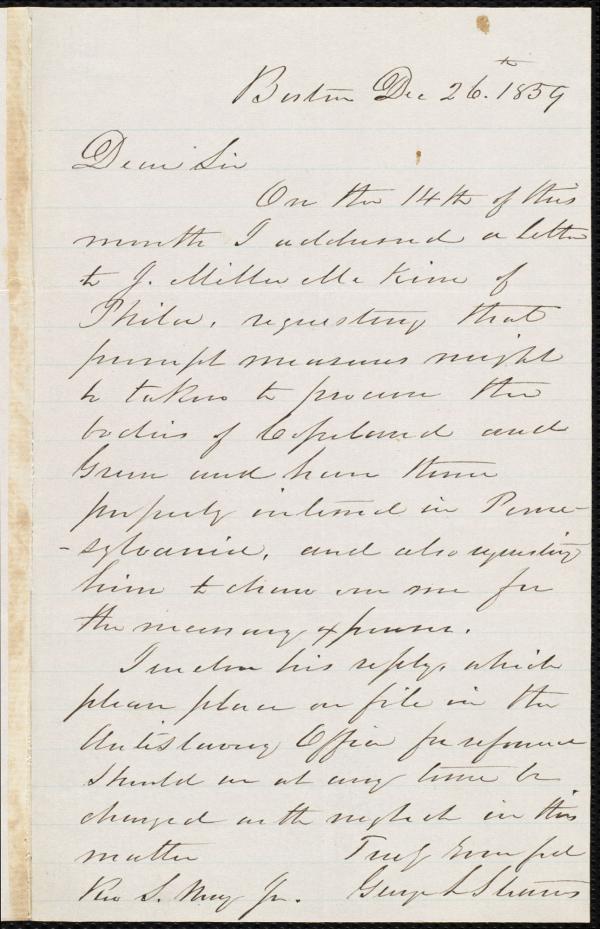 Boston Dec 26th. 1859
Dear Sir
On the 14th of this
month I addressed a letter
to J. Miller McKim of
Phila. requesting that
prompt measures might
be taken to procure the
bodies of Copeland and
Green and have them
properly interred in Penn-
-sylvania, and also requesting
him to draw on me for
the necessary expenses.
I enclose his reply, which
please place on file in the
Antislavery Office for reference
should we at any time be
charged with neglect in this
matter
Truly
Rev S. May Jr.
George L Stearns